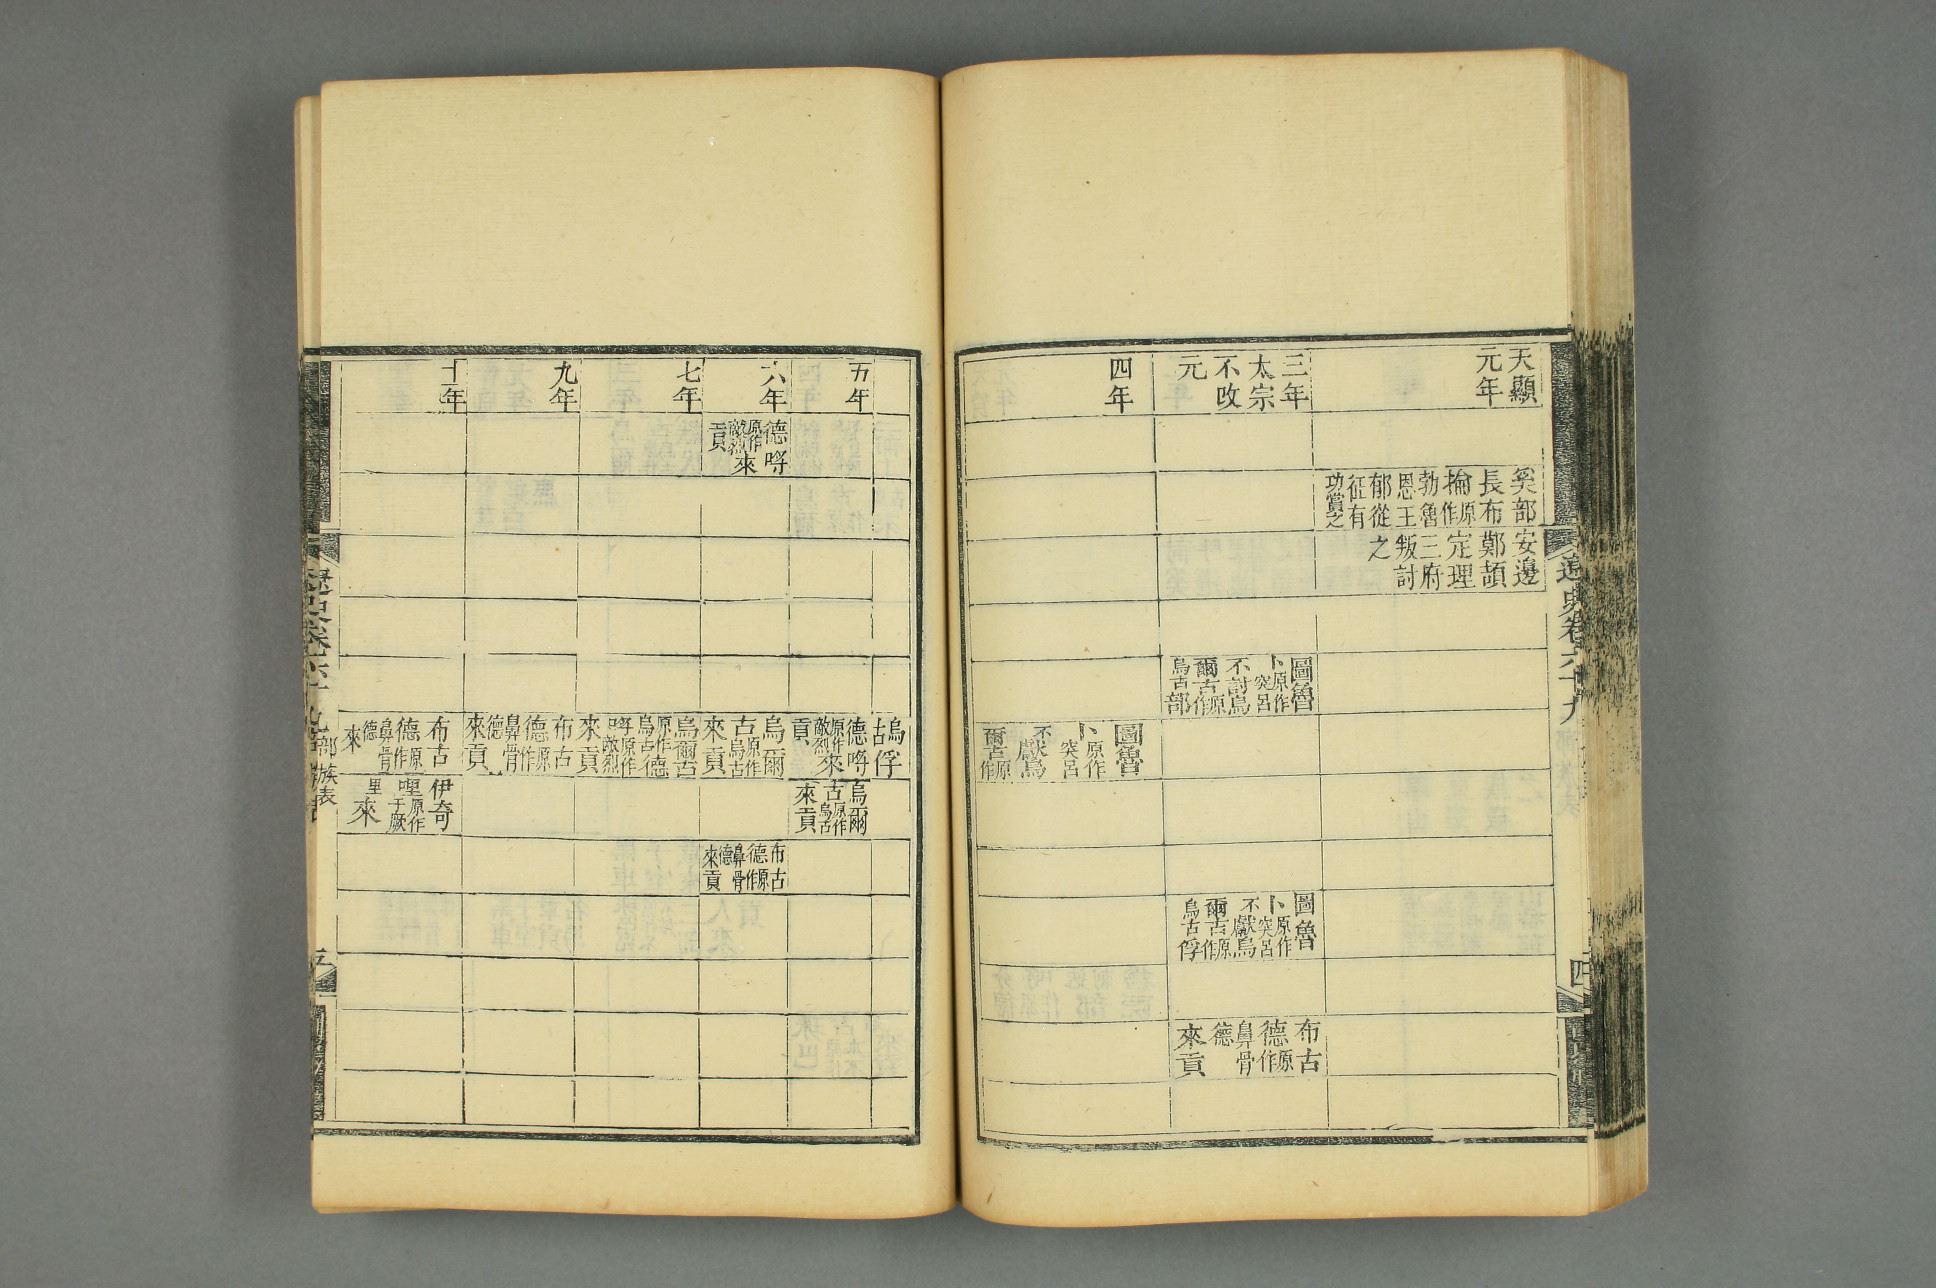 天顯
元年
奚部
長布
掄原作
勃魯
恩王
郁從
征有
功賞之
安邊
鄭頡
定理
三府
叛討
之
三年
太宗
不改
元
圖魯
卜原作突呂
不討烏
爾古原作
烏古部
圖魯
卜原作突呂
不獻烏
爾古原作
烏古俘
布古
德原作
鼻骨
德
來貢
四年
圖魯
卜原作突呂
不獻烏
爾古原作
烏古俘
五年
德哷
原作敵烈來
貢
烏爾
古原作烏古
來貢
六年
德哷
原作敵烈來
貢
烏爾
古原作烏古
來貢
布古
德原作
鼻骨
德
來貢
七年
烏爾古
原作烏古德
哷原作敵烈
來貢
九年
布古
德原作
鼻骨
德
來貢
十年
布古
德原作
鼻骨
德
來
伊奇
哩原作于厥
里
來
遼史卷六十九
部族表
四
五